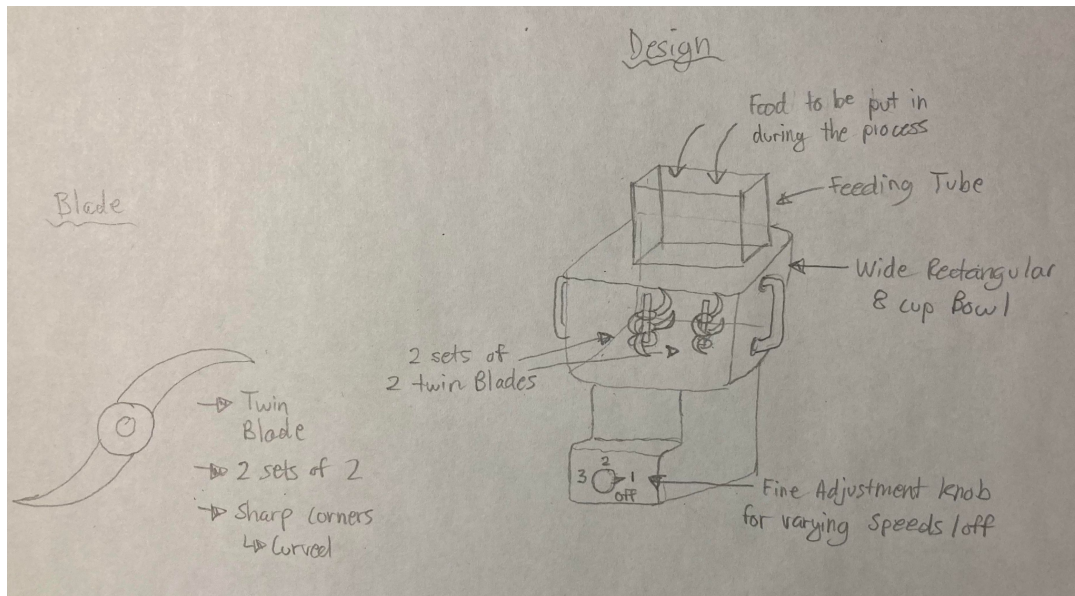 Design
Food to be put in
during the process
Feeding Tube
Wide Rectangular
8 cup Bowl
2 sets of
2 twin Blades
3 2 1
off
Fine Adjustment knob
for varying speeds/off
Blade
Twin
Blade
2 sets of 2
Sharp corners
Curved